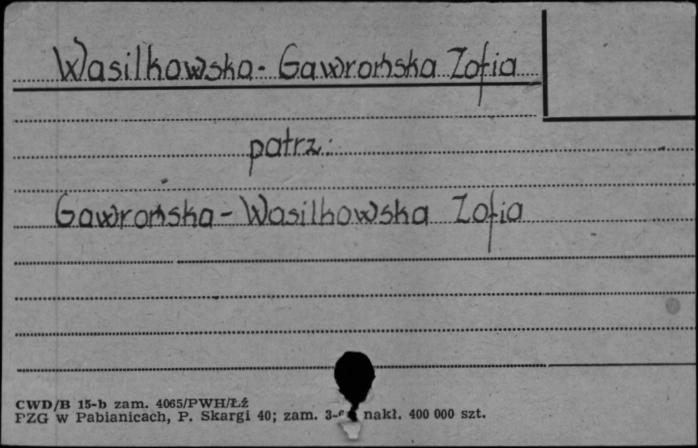 Wasilkowska-Gawrońska Zofia
patrz:
Gawrońska-Wasilkowska Zofia
CWD/B 15-b zam. 4065/PWH/Łź
PZG w Pabianicach, P. Skargi 40; zam. nakł. 400 000 szt.